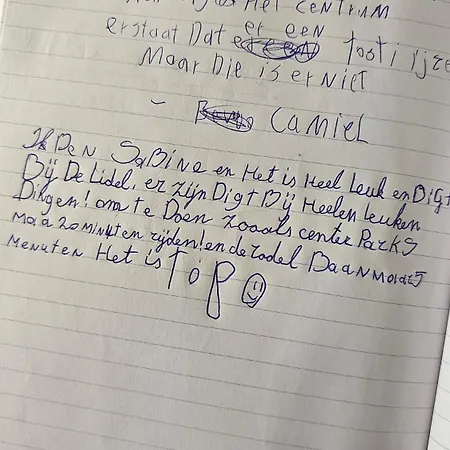 Het centrum
erstaat Dat er een tosti ijze
Maar Die is er Niet
- Camiel
Ik Ben Sabine en Het is Heel leuk en Digt
Bij De Lidel. er zijn Digt Bij Heelen leuken
Dingen! om te Doen zooals center Parks
maa 20 minuten rijden! en de
menuten Het is Top